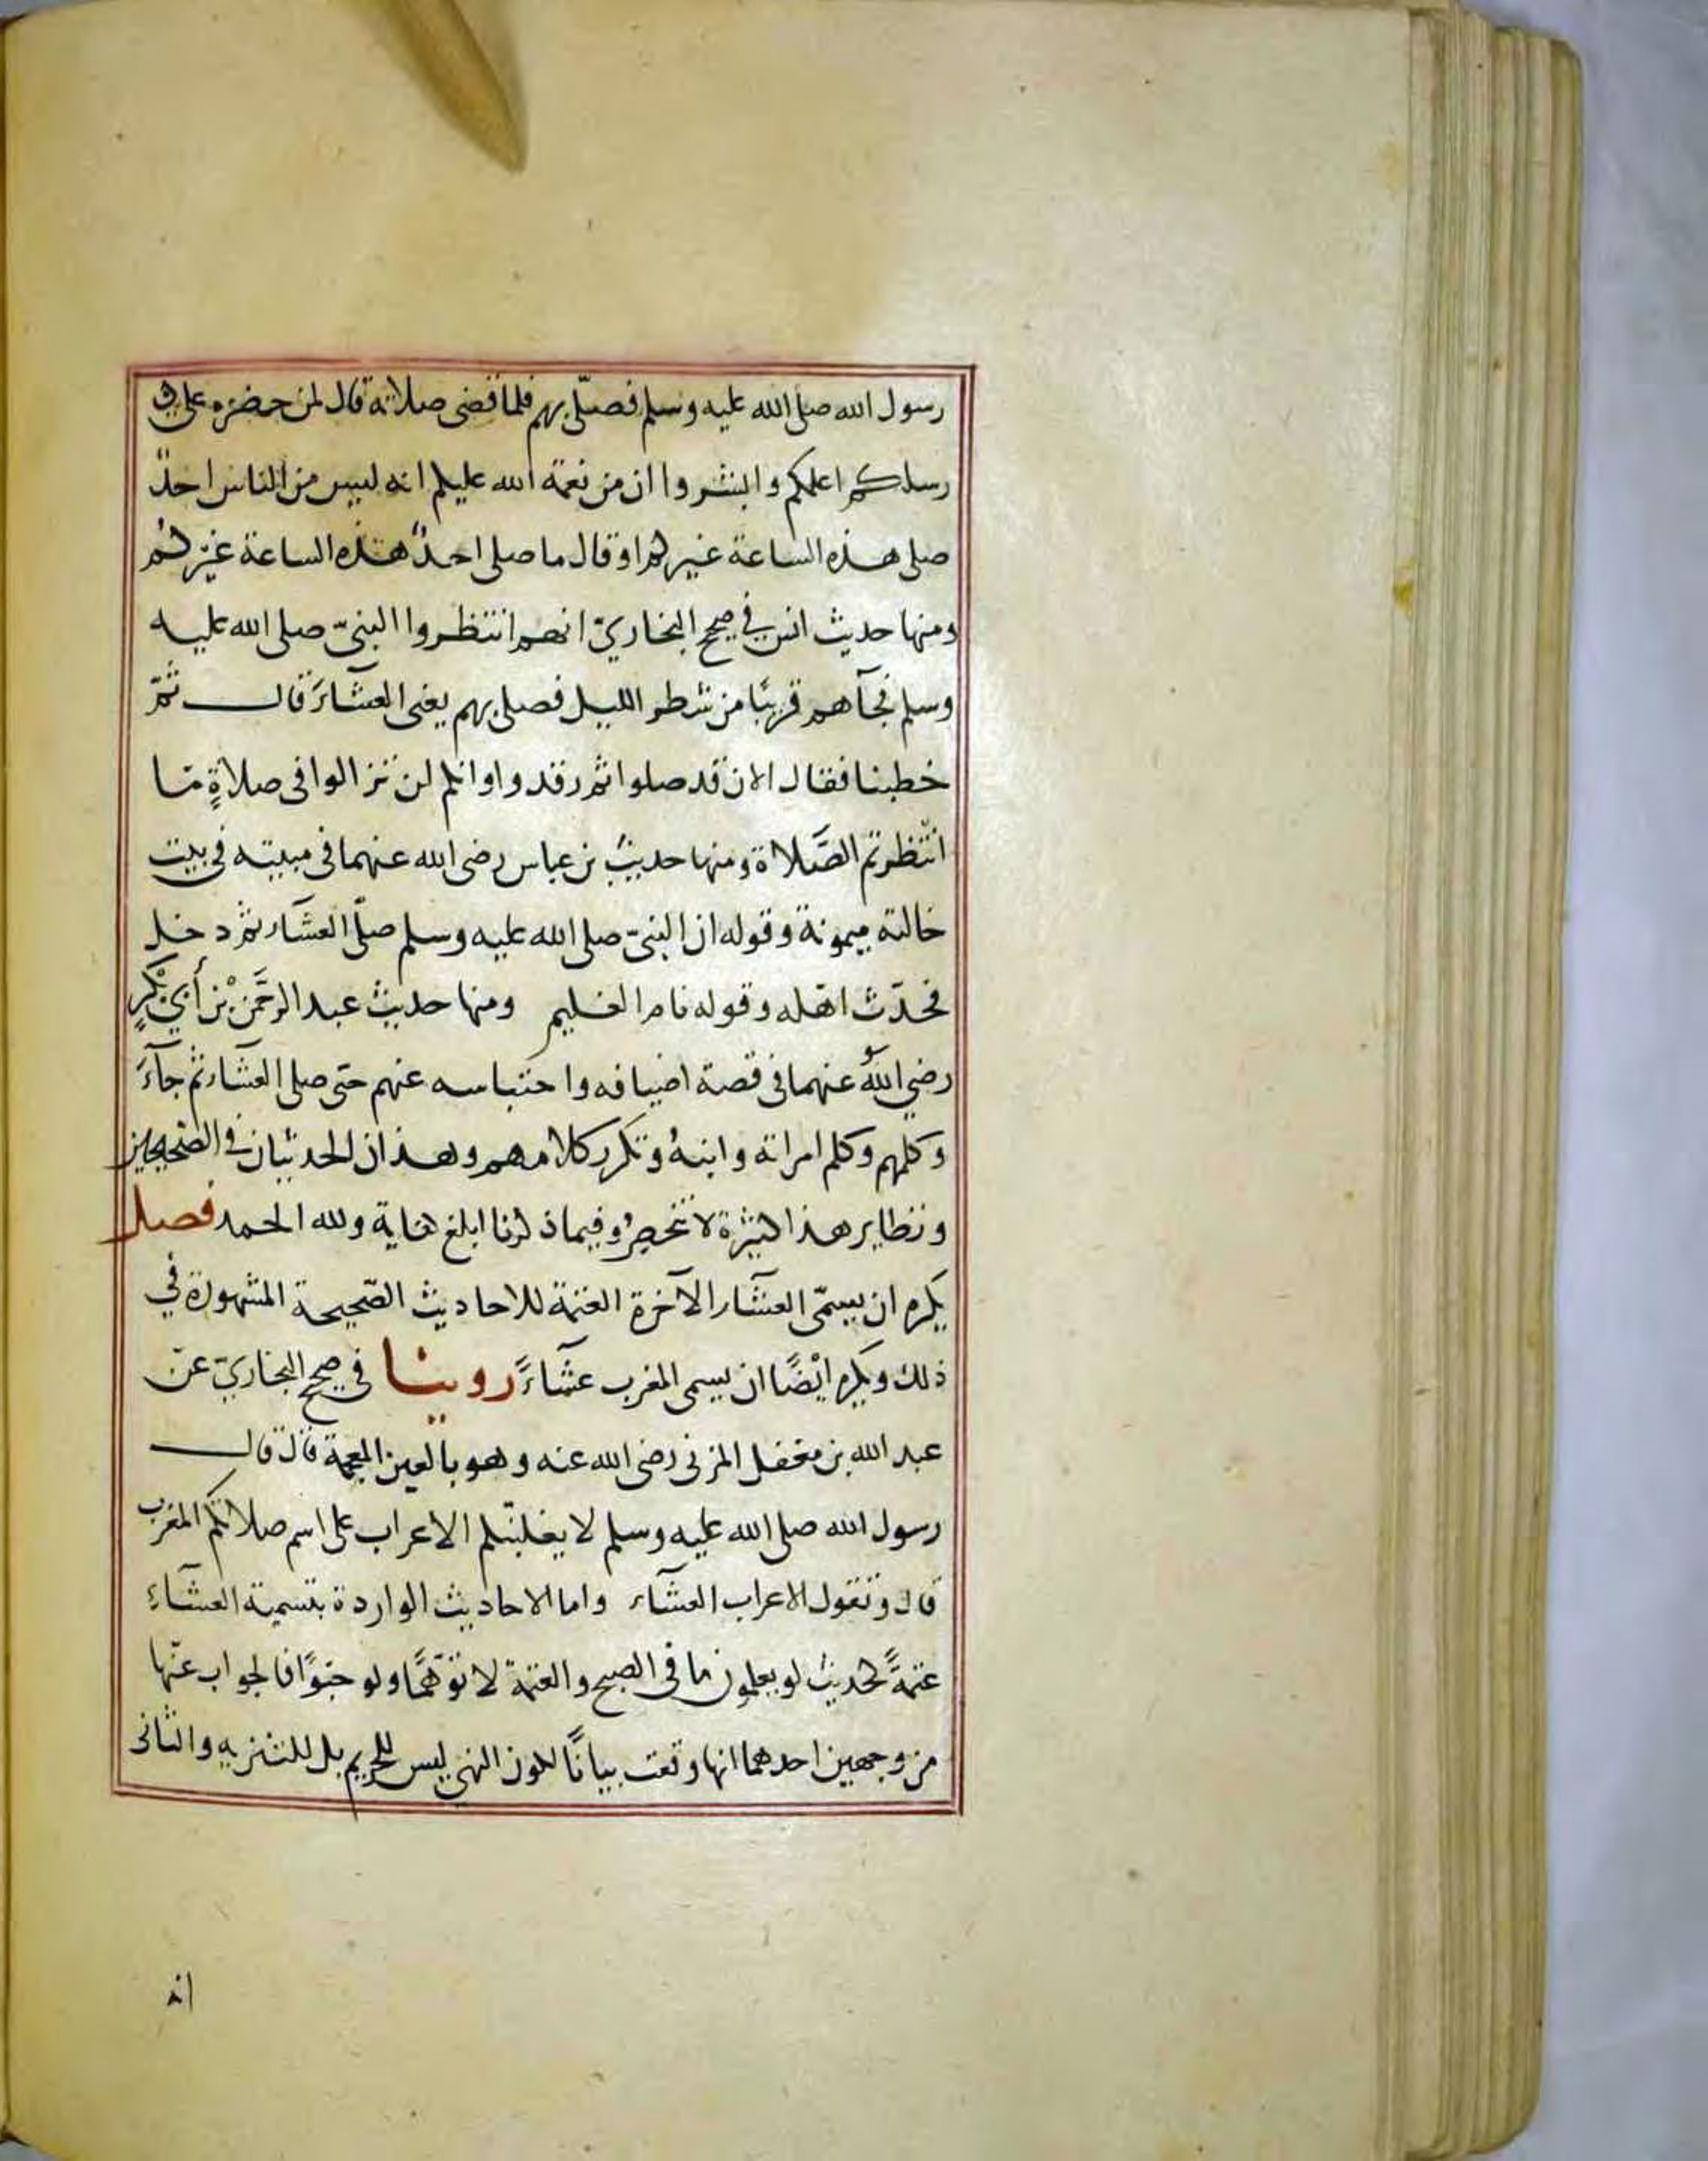 رسول الله صلى الله عليه وسلم فصلّى بهم فلما قضى صلاته قال لمن حضره على
رسلكم اعلمكم وابشروا ان من نعمة الله عليكم انه ليس من الناس احدٌ
صلى هذه الساعة غيركم او قال ما صلى احدٌ هذه الساعة غيركم
ومنها حديث انس في صحيح البخاريّ انهم انتظروا النبيّ صلى الله عليه
وسلم فجآهم قريبًا من شطر الليل فصلى بهم يعنى العشآءَ قال ثمّ
خطبنا فقال الان قد صلوا ثم رقدوا وانكم لن تزالوا فى صلاةٍ ما
انتظرتم الصَّلاة ومنها حديث بن عباس رضى الله عنهما فى مبيته فى بيت
خالته ميمونة وقوله ان النبيّ صلى الله عليه وسلم صلّى العشآء ثم دخل
فحدّث اهله وقوله نام الغليم ومنها حديث عبد الرحمَن بْن أبي بكْرٍ
رضي اللهُ عنهما فى قصة اضيافه واحتباسه عنهم حتى صلى العشآء ثم جآءَ
وكلمهم وكلم امراته وابنهُ وتكرر كلامهم وهذان الحديثان في الصحيحين
ونظاير هذا كثيرة لا تنحصرُ وفيما ذكرنا ابلغ كفاية ولله الحمد فصل
يكره ان يسمّى العشآء الآخرة العتمة للاحاديث الصّحيحة المشهورة في
ذلك ويكره ايْضًا ان يسمى المغرب عشآءً روينا فى صحيح البخاريّ عن
عبد الله بن مغفل المزنى رضى الله عنه وهو بالغين المعجمة قال قال
رسول الله صلى الله عليه وسلم لا يغلبنّكم الاعراب على اسم صلاتكم المغرب
قال وتقول الاعراب العشآء واما الاحاديث الواردة بتسمية العشآءِ
عتمةً لحديث لو يعلمون ما فى الصبح والعتمة لاتوْهمَا ولو حبوًا فالجواب عنها
من وجهين احدهما انها وقعت بيانًا لكون النهي ليس للتحريم بل للتنزيه والثانى